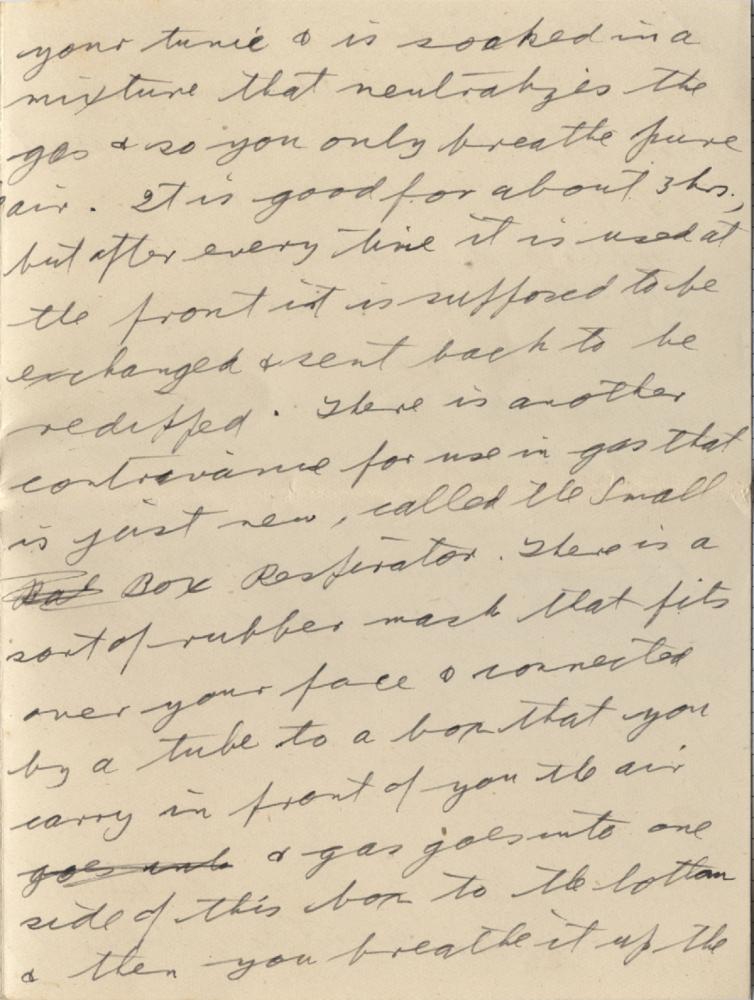 your tunic & is soaked in a
mixture that neutralizes the
gas & so you only breathe pure
air. It is good for about 3 hrs.,
but after every time it is used at
the front it is supposed to be
exchanged & sent back to be
redipped. There is another
contrivance for use in gas that
is just new, called the Small
Box Respirator. There is a
sort of rubber mask that fits
over your face & connected
by a tube to a box that you
carry in front of you the air
goes into & gas goes into one
side of this box to the bottom
& then you breathe it up the